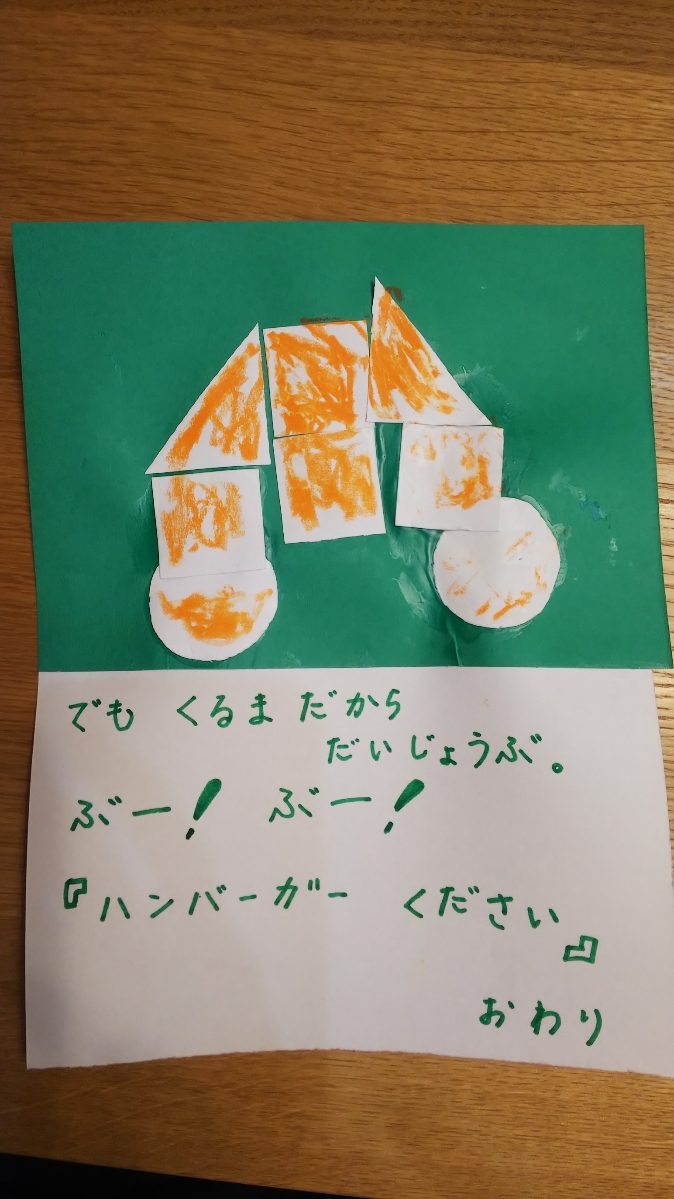 でも くるま だから
だいじょうぶ。
ぶー! ぶー!
『ハンバーガー ください』
おわり